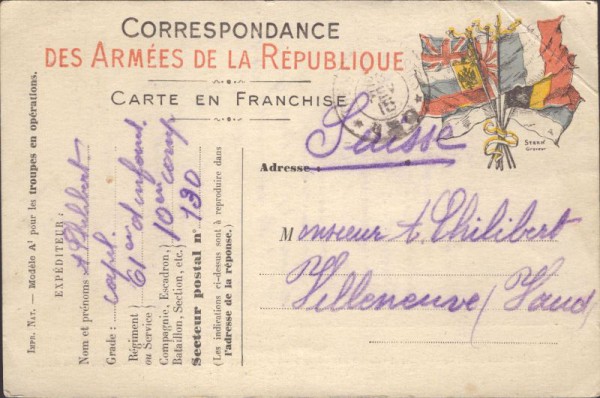 CORRESPONDANCE
DES ARMÉES DE LA RÉPUBLIQUE
CARTE EN FRANCHISE
15
*130*
STERN
Graveur
Suisse
Adresse :
Monsieur A. Philibert
Villeneuve (Vaud)
IMPR. NAT. — Modèle A¹ pour les troupes en opérations.
EXPÉDITEUR :
Nom et prénoms A Philibert
Grade : capl.
Régiment
ou Service) 61e d'infant.
Compagnie, Escadron,
Bataillon, Section, etc.) 10em comp
Secteur postal n° 130
(Les indications ci-dessus sont à reproduire dans
l'adresse de la réponse.)